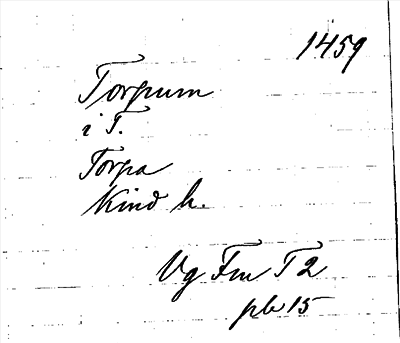 1459
Torpum
i T.
Torpa
Kind h.
Vg Fm T 2
pb 15